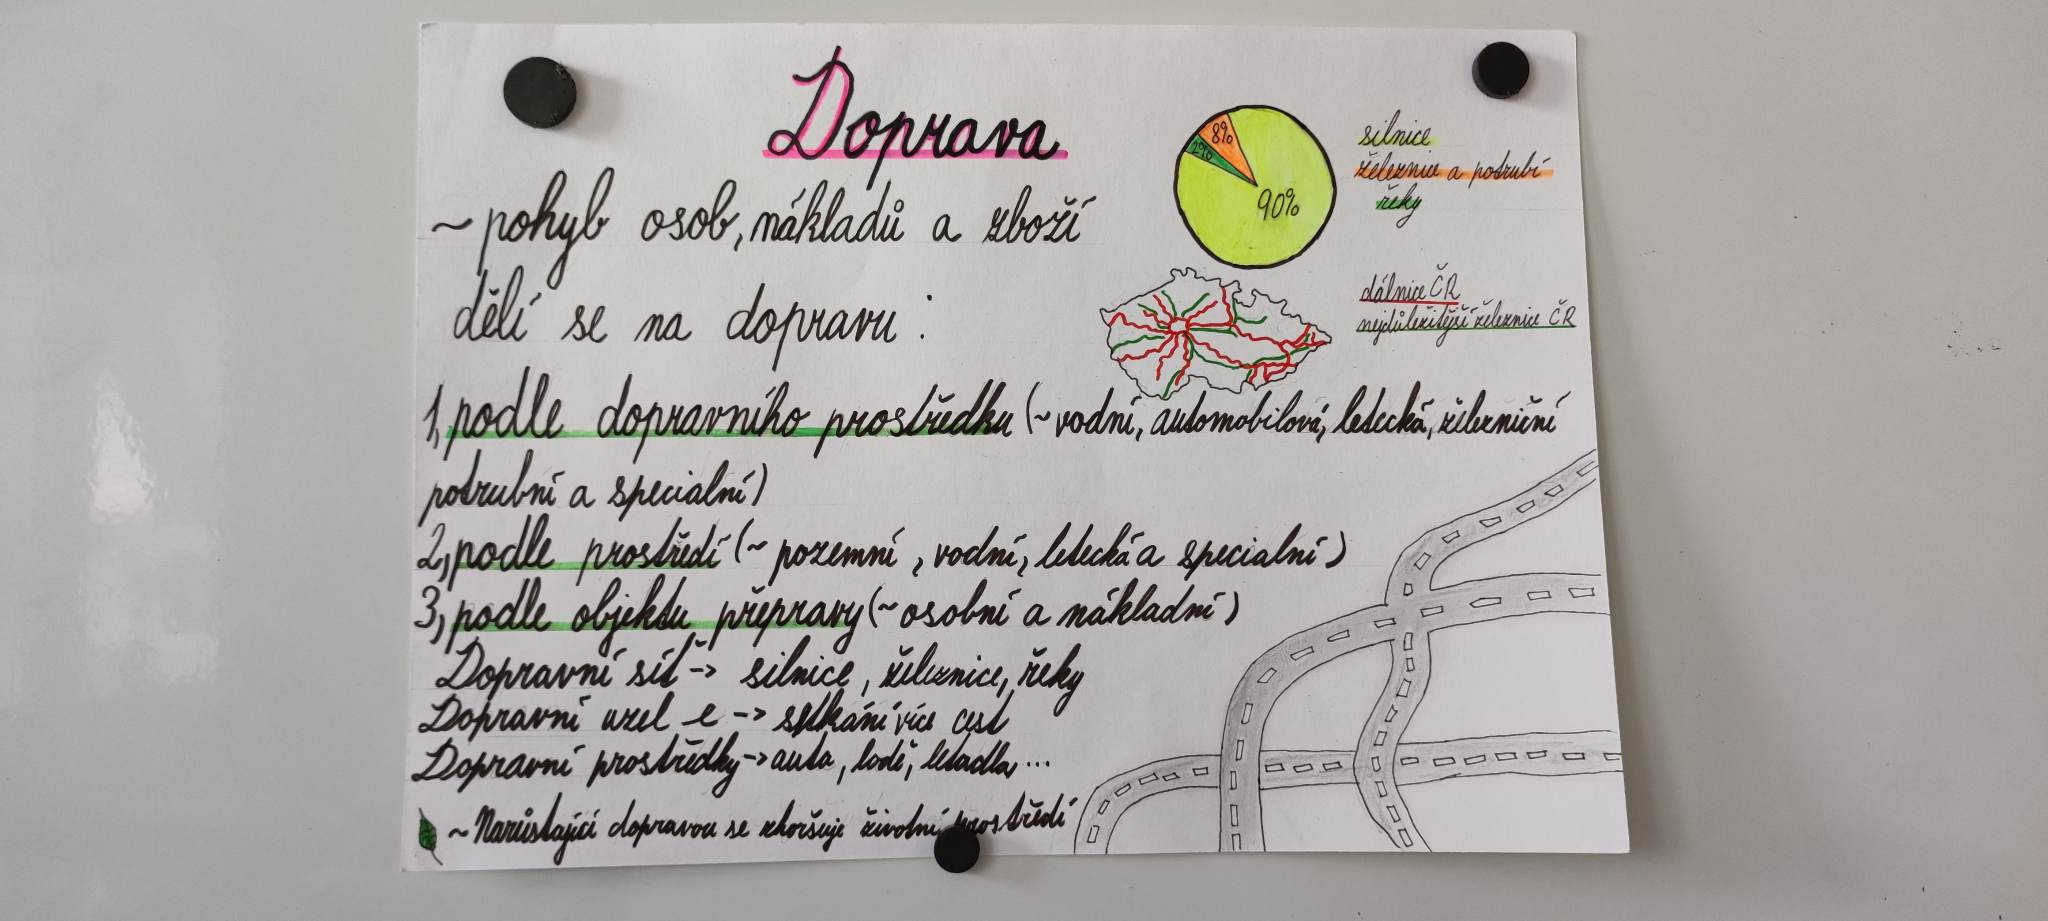 Doprava
~ pohyb osob, nákladů a zboží
dělí se na dopravu :
8%
2%
90%
silnice
železnice a potrubí
řeky
dálnice ČR
nejdůležitější železnice ČR
1, podle dopravního prostředku (~ vodní, automobilová, letecká, železniční
potrubní a specialní)
2, podle prostředí (~ pozemní , vodní, letecká a specialní)
3, podle objektu přepravy (~ osobní a nákladní)
Dopravní síť -> silnice , železnice, řeky
Dopravní uzel -> setkání více cest
Dopravní prostředky -> auta, lodě, letadla...
~ Narůstající dopravou se zhoršuje životní prostředí